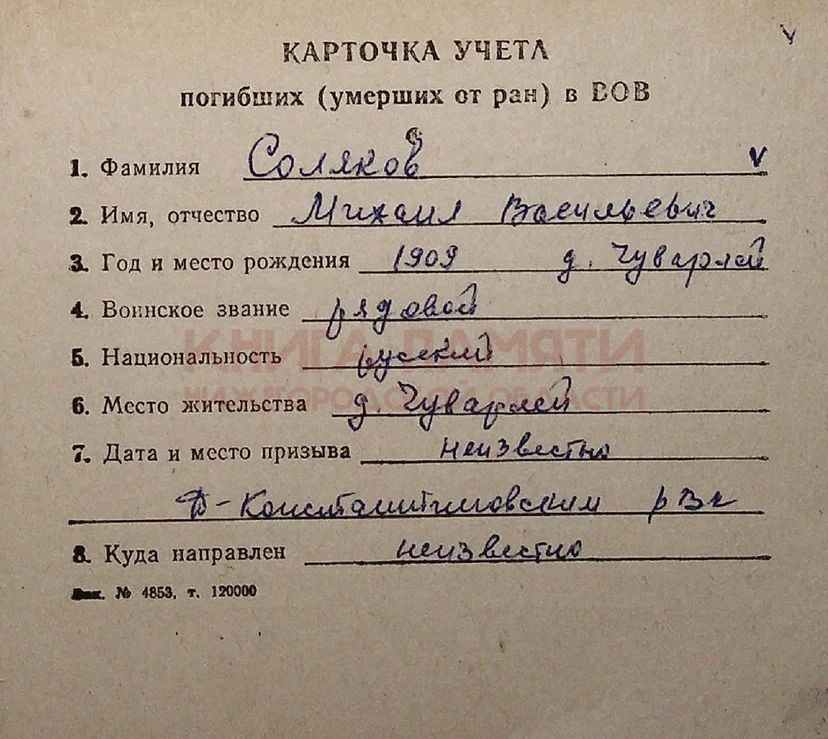 КАРТОЧКА УЧЕТА
погибших (умерших от ран) в ВОВ
1. Фамилия Соляков v
2. Имя, отчество Михаил Васильевич
3. Год и место рождения 1909 д. Чуварлей
4. Воинское звание рядовой
КНИГА ПАМЯТИ
5. Национальность русский
НИЖЕГОРОДСКОЙ ОБЛАСТИ
6. Место жительства д. Чуварлей
7. Дата и место призыва неизвестно
Д-Константиновским рвк
8. Куда направлен неизвестно
Зак. № 4853, т. 120000